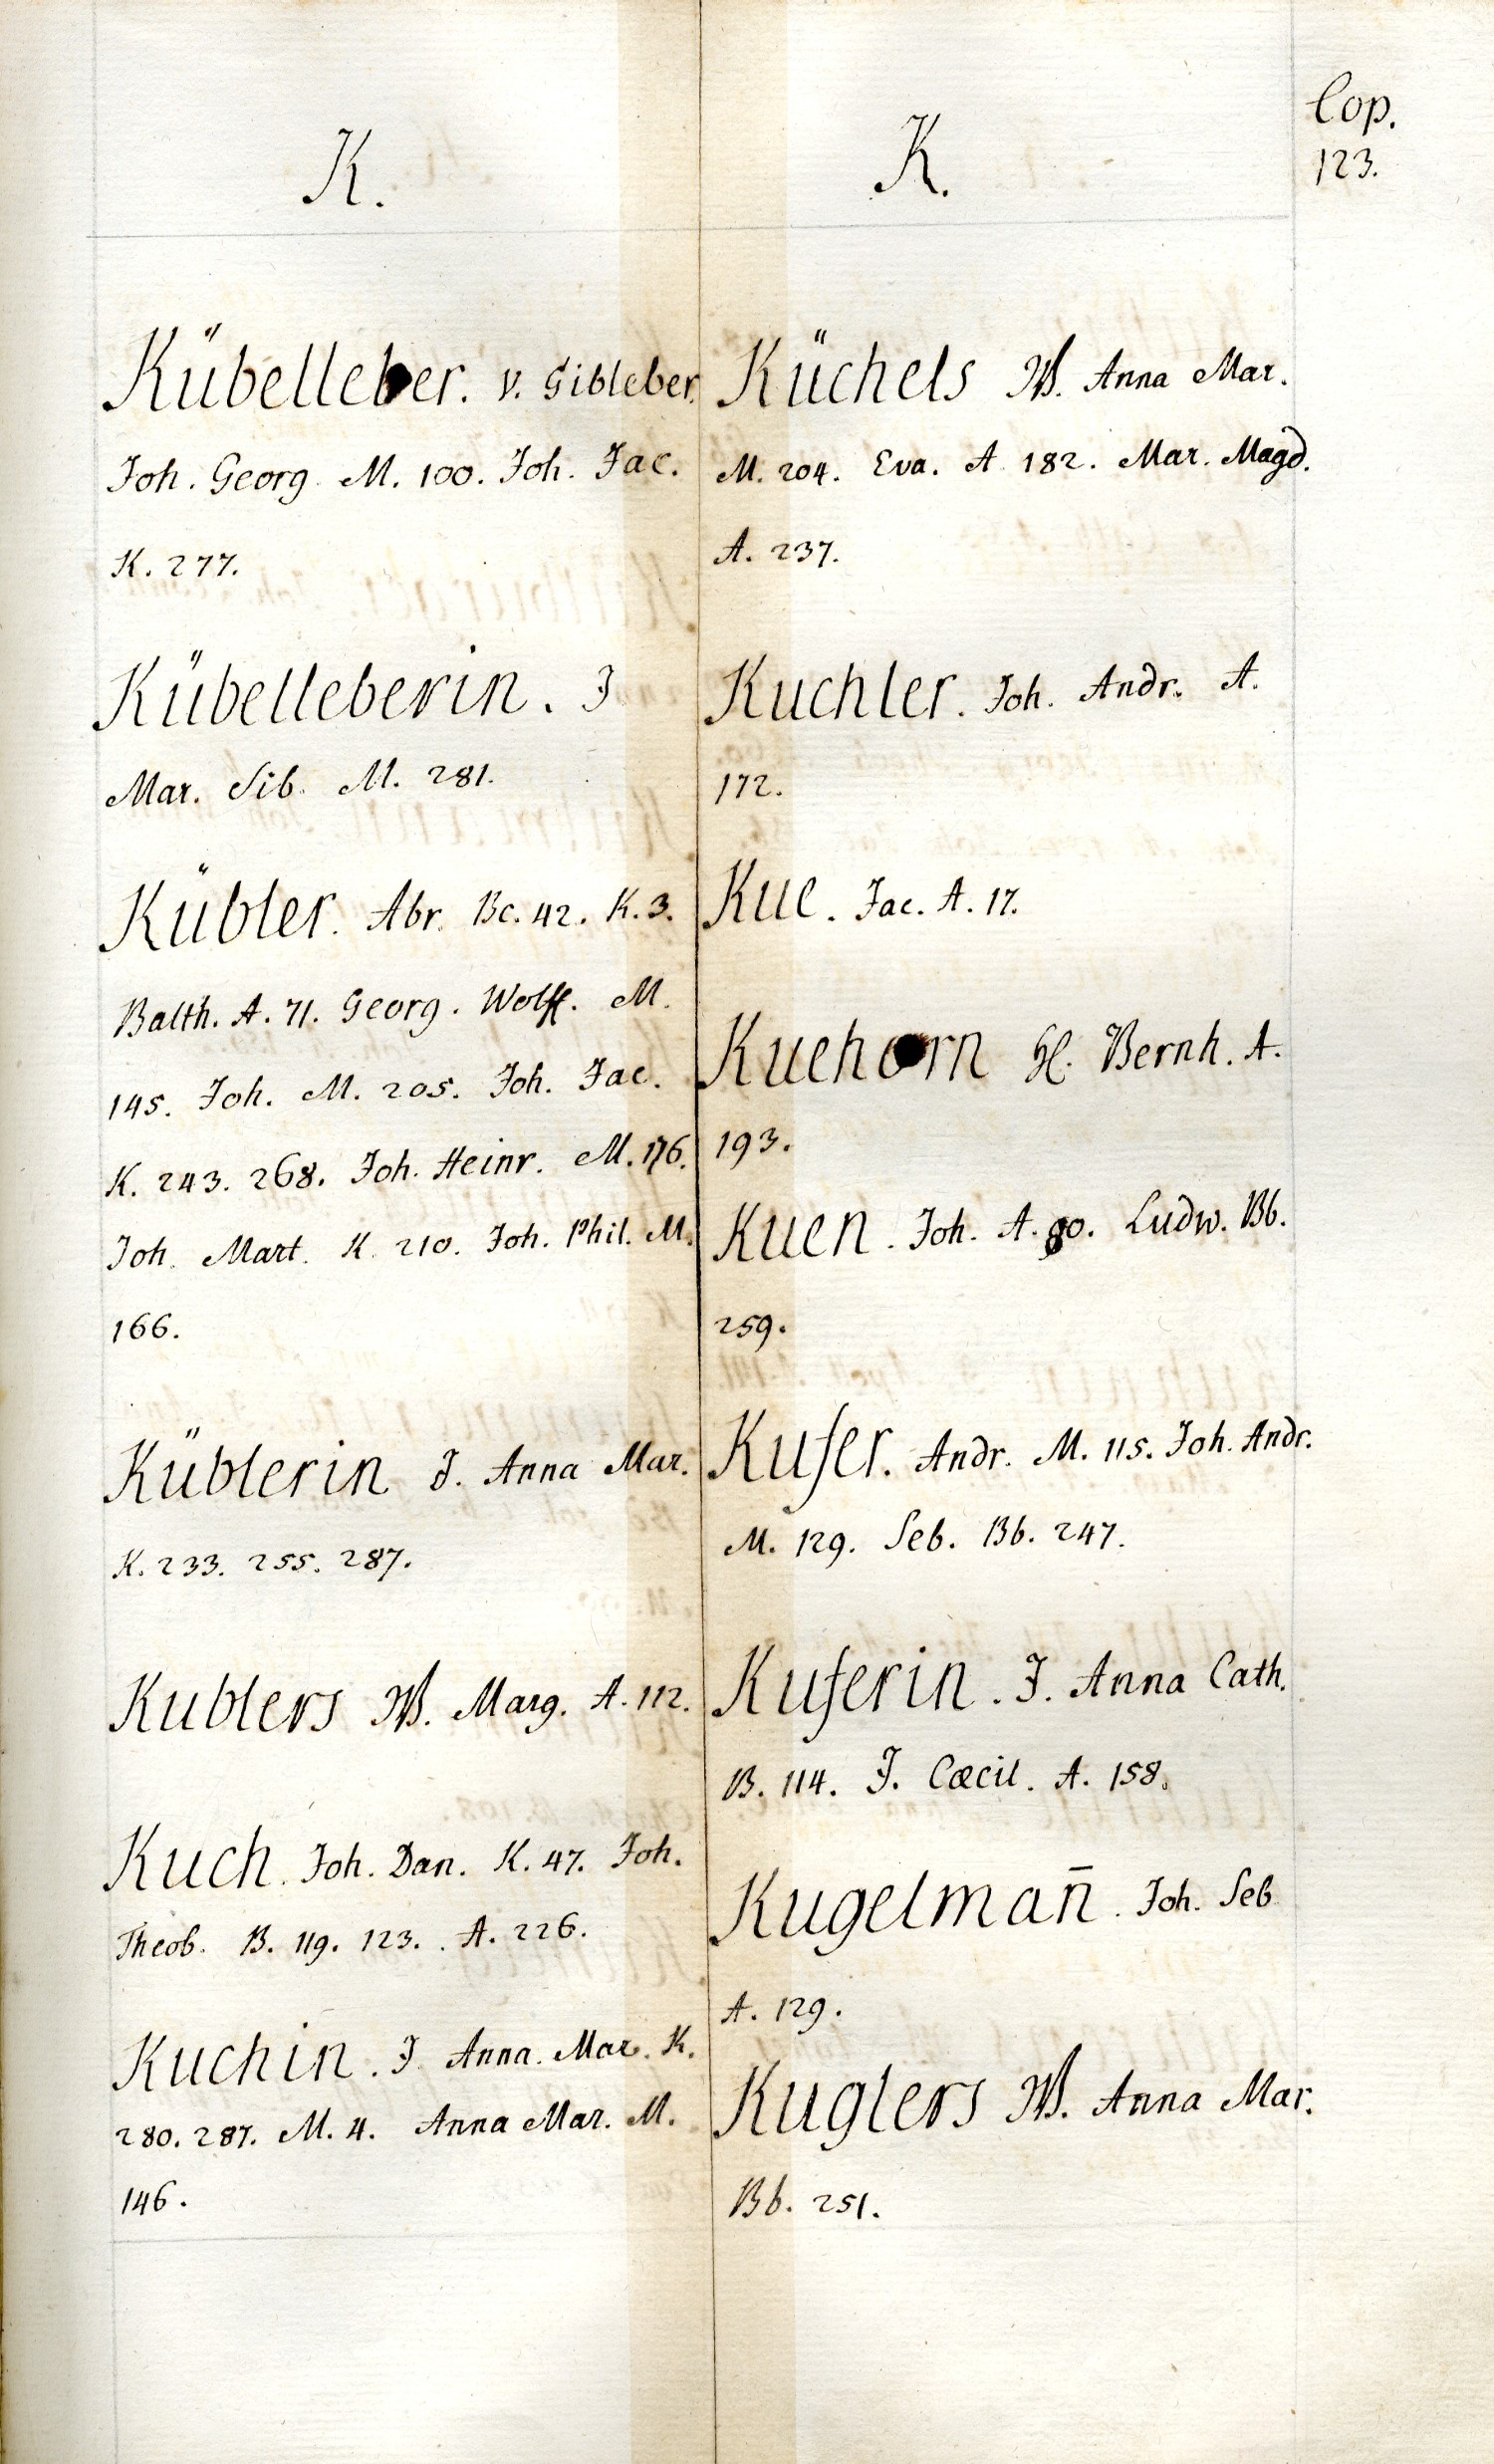 Cop.
123.
K.
Kübelleber. v. Gibleber.
Joh. Georg M. 100. Joh. Jac.
K. 277.
Kübelleberin. J
Mar. Sib. M. 281.
Kübler. Abr. Bc. 42. K. 3.
Balth. A. 71. Georg. Wolff. M.
145. Joh. M. 205. Joh. Jac.
K. 243. 268. Joh. Heinr. M. 176.
Joh. Mart. K. 210. Joh. Phil. M.
166.
Küblerin J. Anna Mar.
K. 233. 255. 287.
Kublers W. Marg. A. 112.
Kuch. Joh. Dan. K. 47. Joh.
Theob. B. 119. 123. A. 226.
Kuchin. J. Anna. Mar. K.
280. 287. M. 4. Anna Mar. M.
146.
K.
Küchels W. Anna Mar.
M. 204. Eva. A 182. Mar. Magd.
A. 237.
Kuchler. Joh. Andr. A.
172.
Kue. Jac. A. 17.
Kuehorn H. Bernh. A.
193.
Kuen. Joh. A. 80. Ludw. Bb.
259.
Kufer. Andr. M. 115. Joh. Andr.
M. 129. Seb. Bb. 247.
Kuferin. J. Anna Cath.
B. 114. J. Cæcil. A. 158.
Kugelman̄. Joh. Seb
A. 129.
Kuglers W. Anna Mar.
Bb. 251.